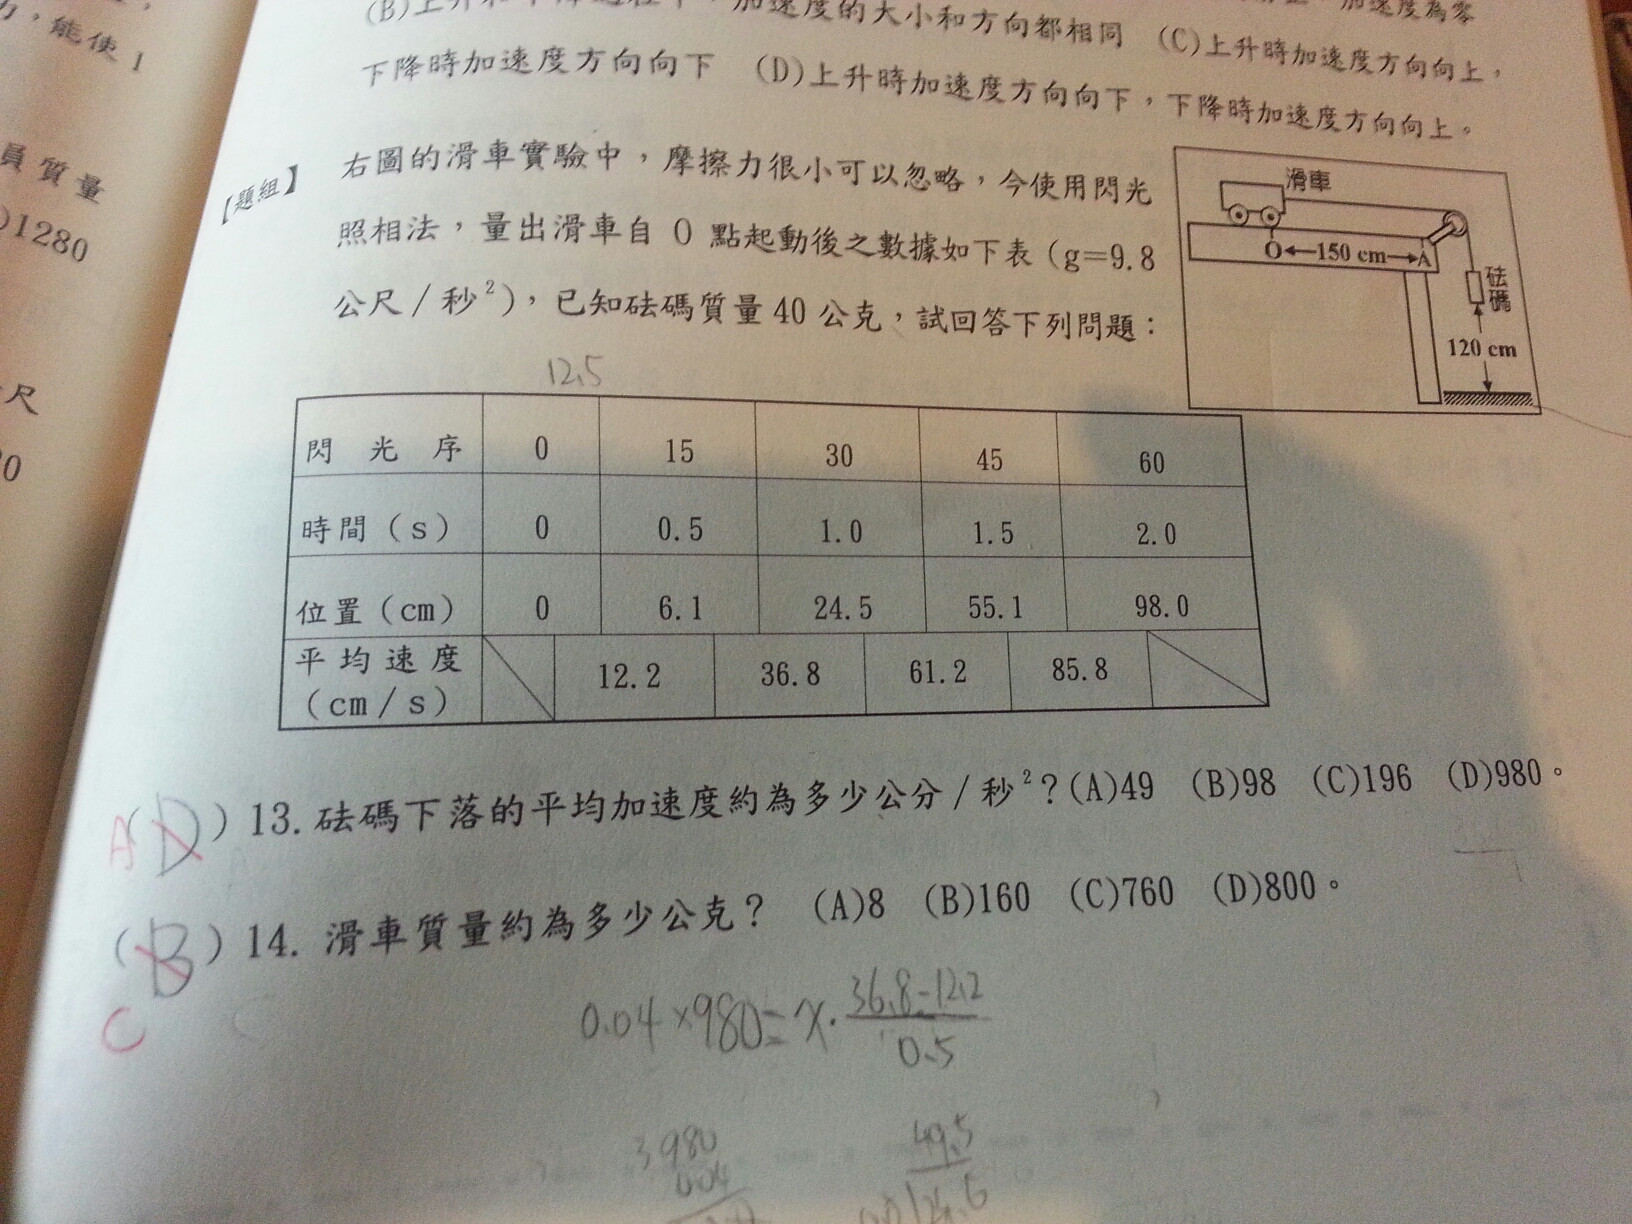 (B)上升和下降過程中，加速度的大小和方向都相同 (C)上升時加速度方向向上，
加速度為零
下降時加速度方向向下 (D)上升時加速度方向向下，下降時加速度方向向上。
，能使1
員質量
)1280
尺
【題組】
右圖的滑車實驗中，摩擦力很小可以忽略，今使用閃光
照相法，量出滑車自 O 點起動後之數據如下表（g＝9.8
公尺／秒²），已知砝碼質量 40 公克，試回答下列問題：
滑車
O←150 cm→A
砝碼
120 cm
12.5
閃光序 0 15 30 45 60
時間（s） 0 0.5 1.0 1.5 2.0
位置（cm） 0 6.1 24.5 55.1 98.0
平均速度
（cm／s） 12.2 36.8 61.2 85.8
A (D) 13. 砝碼下落的平均加速度約為多少公分／秒²？(A)49 (B)98 (C)196 (D)980。
(B) 14. 滑車質量約為多少公克？ (A)8 (B)160 (C)760 (D)800。
C
0.04×980=x·36.8-12.2
0.5
980
0.04
49.5
24.6